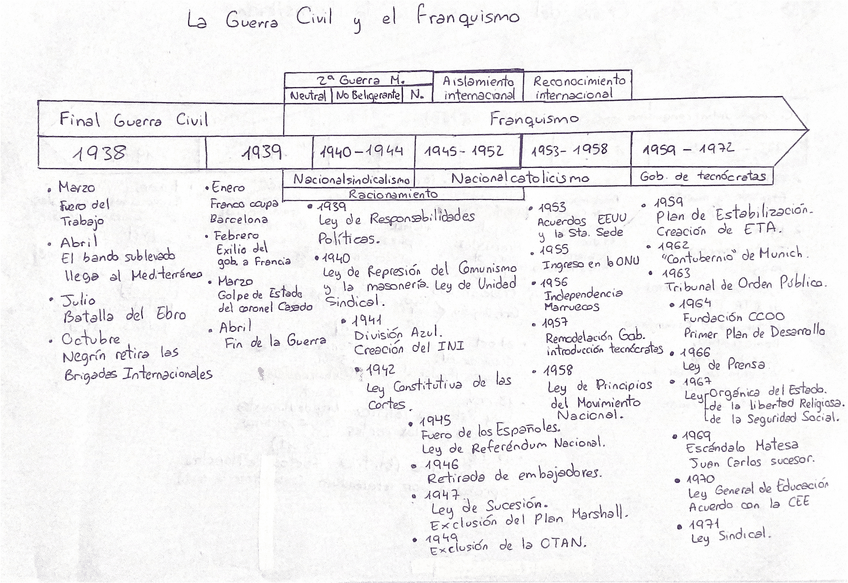 La Guerra Civil y el Franquismo
2ª Guerra M.
Neutral No Beligerante N.
Aislamiento
internacional
Reconocimiento
internacional
Final Guerra Civil
Franquismo
1938
1939
1940-1944
1945-1952
1953-1958
1959-1972
Nacionalsindicalismo
Nacionalcatolicismo
Gob. de tecnócratas
Racionamiento
• Marzo
Fuero del
Trabajo
• Abril
El bando sublevado
llega al Mediterráneo
• Julio
Batalla del Ebro
• Octubre
Negrín retira las
Brigadas Internacionales
• Enero
Franco ocupa
Barcelona
• Febrero
Exilio del
gob. a Francia
• Marzo
Golpe de Estado
del coronel Casado
• Abril
Fin de la Guerra
• 1939
Ley de Responsabilidades
Políticas.
• 1940
Ley de Represión del Comunismo
y la masonería. Ley de Unidad
Sindical.
• 1941
División Azul.
Creación del INI
• 1942
Ley Constitutiva de las
Cortes.
• 1945
Fuero de los Españoles.
Ley de Referéndum Nacional.
• 1946
Retirada de embajadores.
• 1947
Ley de Sucesión.
Exclusión del Plan Marshall.
• 1949
Exclusión de la OTAN.
• 1953
Acuerdos EEUU
y la Sta. Sede
• 1955
Ingreso en la ONU
• 1956
Independencia
Marruecos
• 1957
Remodelación Gob.
introducción tecnócratas
• 1958
Ley de Principios
del Movimiento
Nacional.
• 1959
Plan de Estabilización.
Creación de ETA.
• 1962
"Contubernio" de Munich.
• 1963
Tribunal de Orden Público.
• 1964
Fundación CCOO
Primer Plan de Desarrollo
• 1966
Ley de Prensa.
• 1967
Ley Orgánica del Estado.
de la libertad Religiosa.
de la Seguridad Social.
• 1969
Escándalo Matesa
Juan Carlos sucesor.
• 1970
Ley General de Educación
Acuerdo con la CEE
• 1971
Ley Sindical.